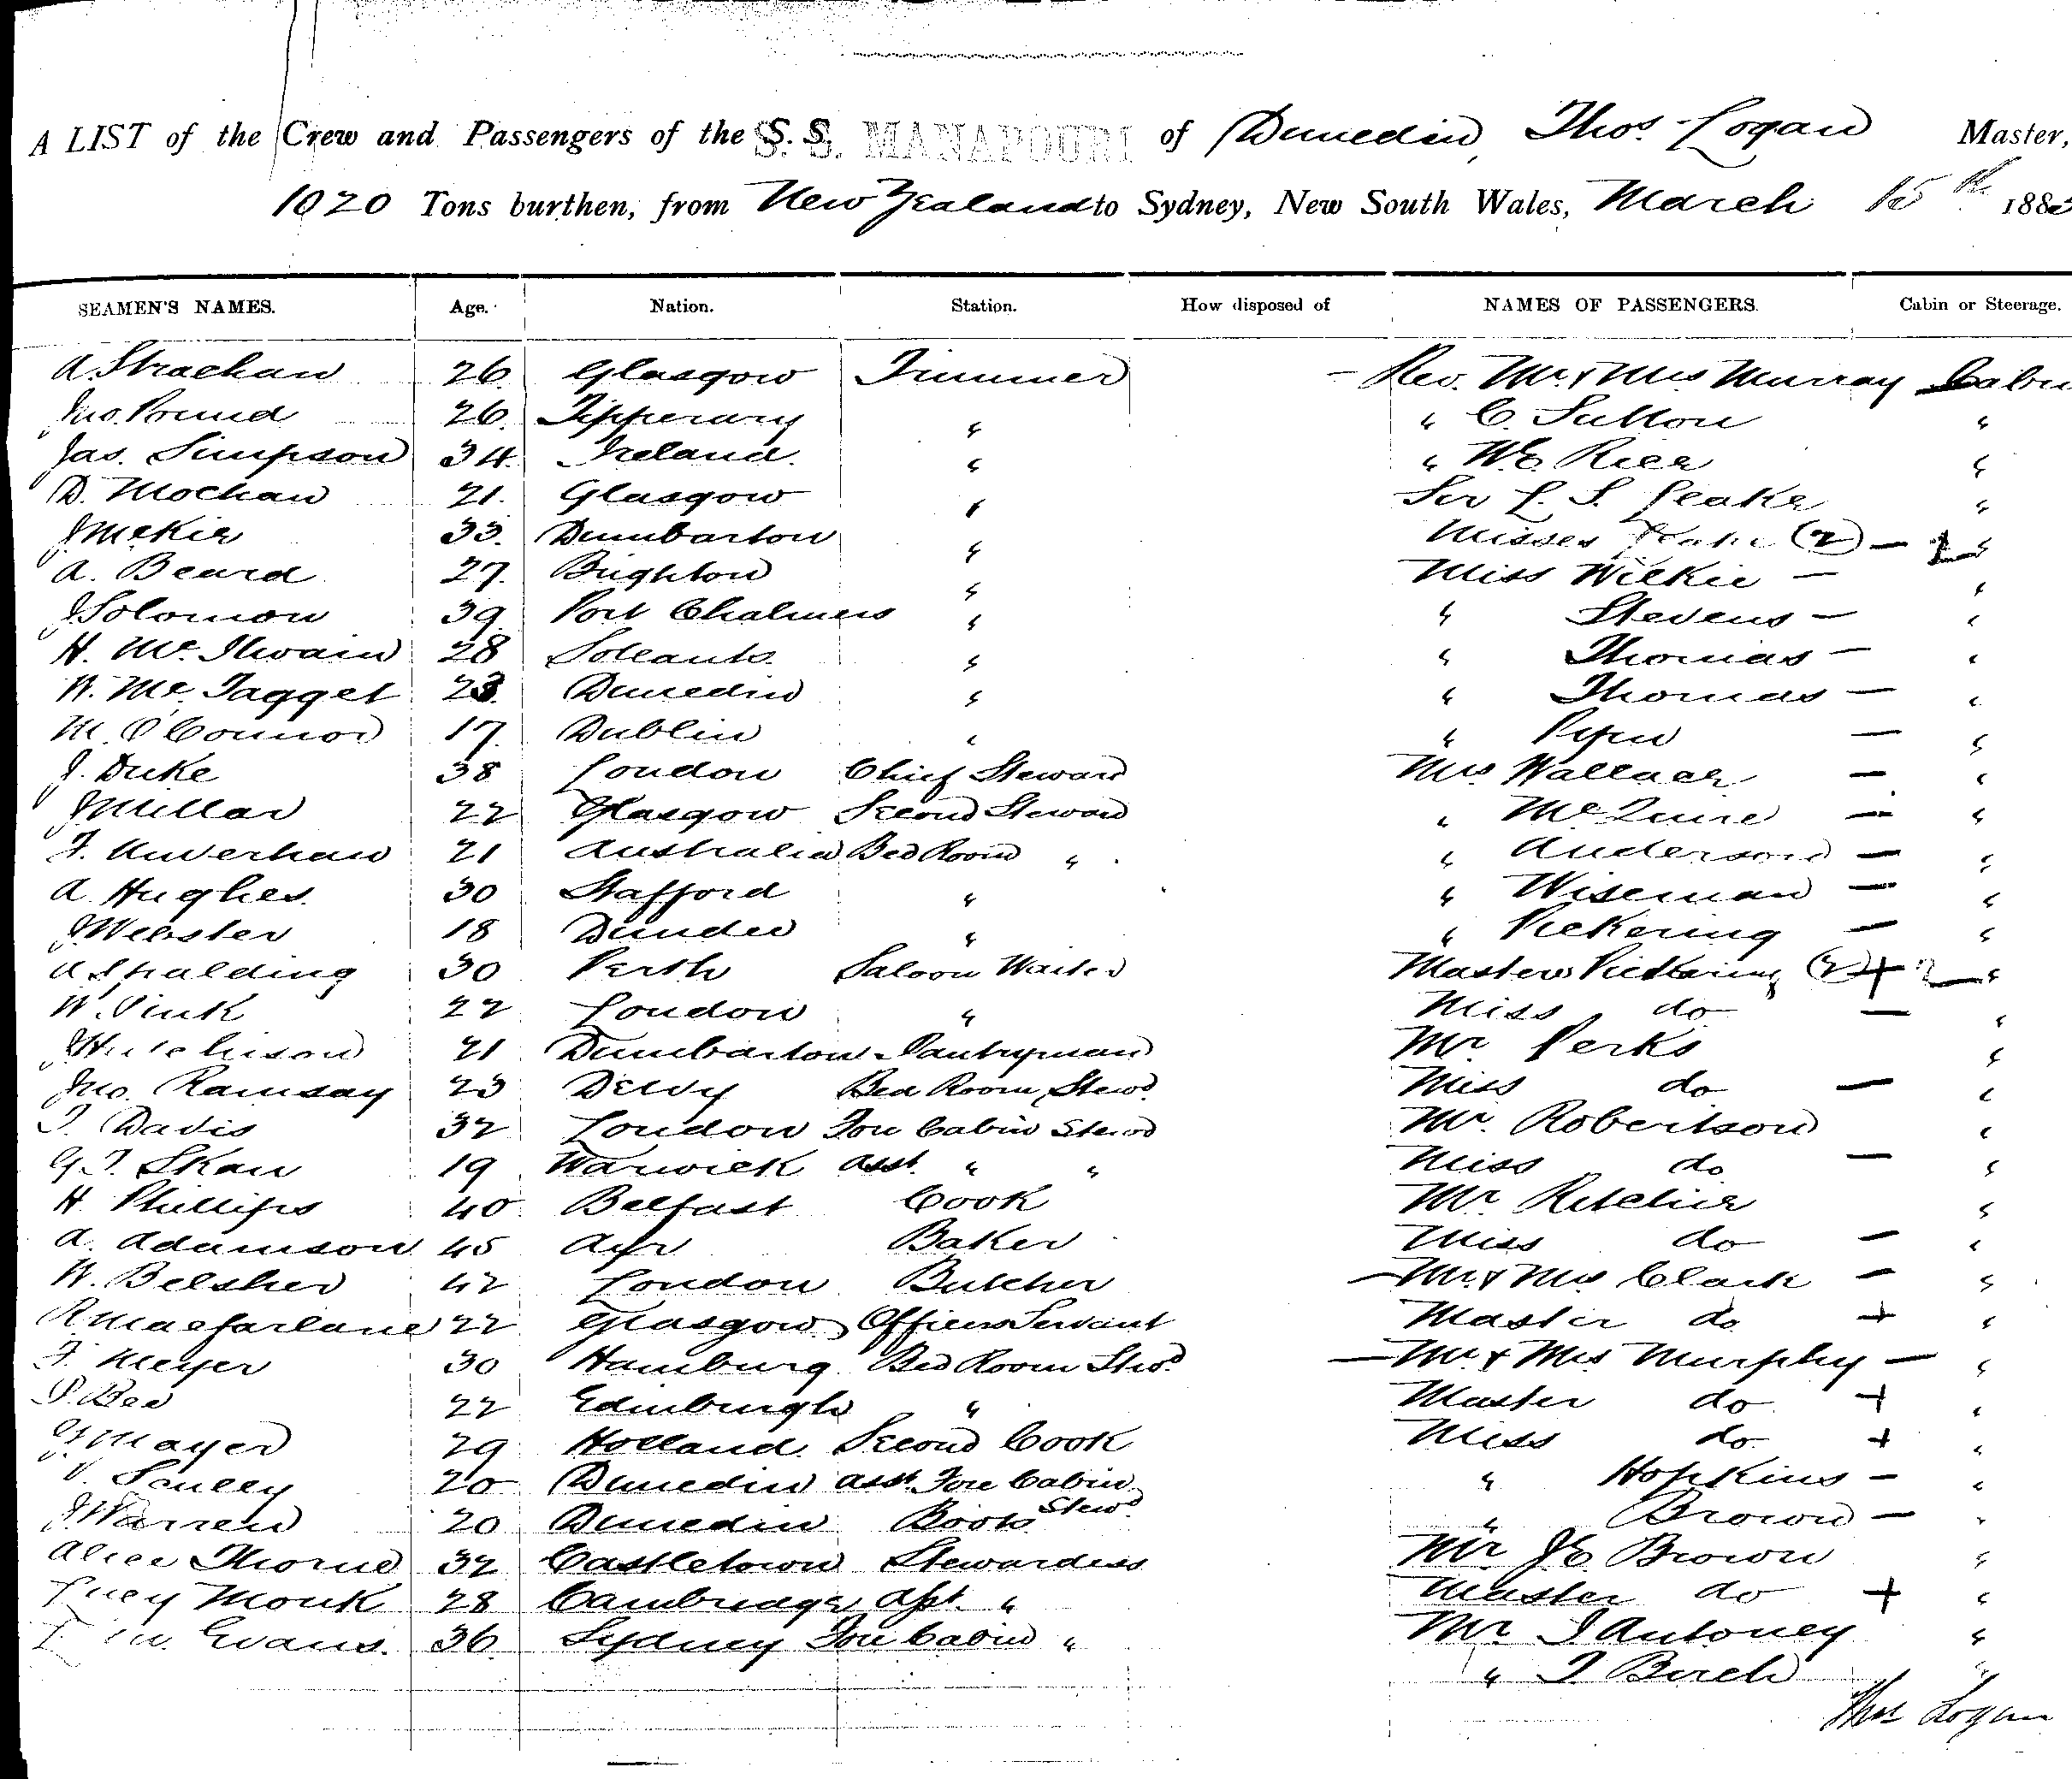 A LIST of the Crew and Passengers of the S. S. S. S. MANAPOURI of Dunedin, Thos Logan Master,
1020 Tons burthen, from New Zealand to Sydney, New South Wales, March 15th 188
SEAMEN'S NAMES. Age. Nation. Station. How disposed of NAMES OF PASSENGERS. Cabin or Steerage.
A. Strachan 26 Glasgow Trimmer — Rev. Mr & Mrs Murray Cabin
Jno. Pound 26. Tipperary " " C. Sutton "
Jas. Simpson 34 Ireland. " " W. E. Rice "
D. Mochan 21. Glasgow " Sir L. S. Leake "
J McKie 33. Dumbarton " Misses (2) — "
A. Beard 27. Brighton " Miss Wilkie — "
J Solomon 39 Port Chalmers " " Stevens — "
H. Mc. Ilwain 28 " " Thomas — "
W. Mc. Tagget 23. Dunedin " " Thomas — "
M. O'Connor 17. Dublin " " — "
J. Duke 38 London Chief Steward Mrs Wallace — "
J Millar 22 Glasgow Second Steward " — "
F. 21 Australia Bed Room " " Anderson — "
A. Hughes. 30 Stafford " " Wiseman — "
J Webster 18 Dundee " " Pickering — "
A Spalding 30 Perth Saloon Waiter Masters Pickering (2) + 2 "
W. Pink 22 London " Miss do — "
J Hutchison 21 Dumbarton Pantryman Mr Perks "
Jno. Ramsay 23 Bed Room Stewd Miss do — "
T. Davis 32 London Fore Cabin Stewd Mr. Robertson "
G. T. Skan 19 Warwick Asst. " " Miss do — "
H Phillips 40 Belfast Cook Mr Ritchie "
A. Adamson 45 Ayr Baker Miss do — "
W. Belsher 42 London Butcher — Mr & Mrs Clark — "
R Macfarlane 22 Glasgow Officers Servant Master do + "
F. Meyer 30 Hamburg Bed Room Stwd — Mr. & Mrs Murphy — "
22 Edinburgh " Master do + "
G Mayer 29 Holland Second Cook Miss do + "
20 Dunedin Asst. Fore Cabin Stewd " Hopkins — "
J Warren 20 Dunedin Boots " Brown — "
Alice Thorne 32 Castletown Stewardess Mr J E Brown "
Lucy Monk 28 Cambridge Asst. " Master do + "
Evans. 36 Sydney Fore Cabin " Mr. J Antoney "
" T. Birch "
Thos Logan